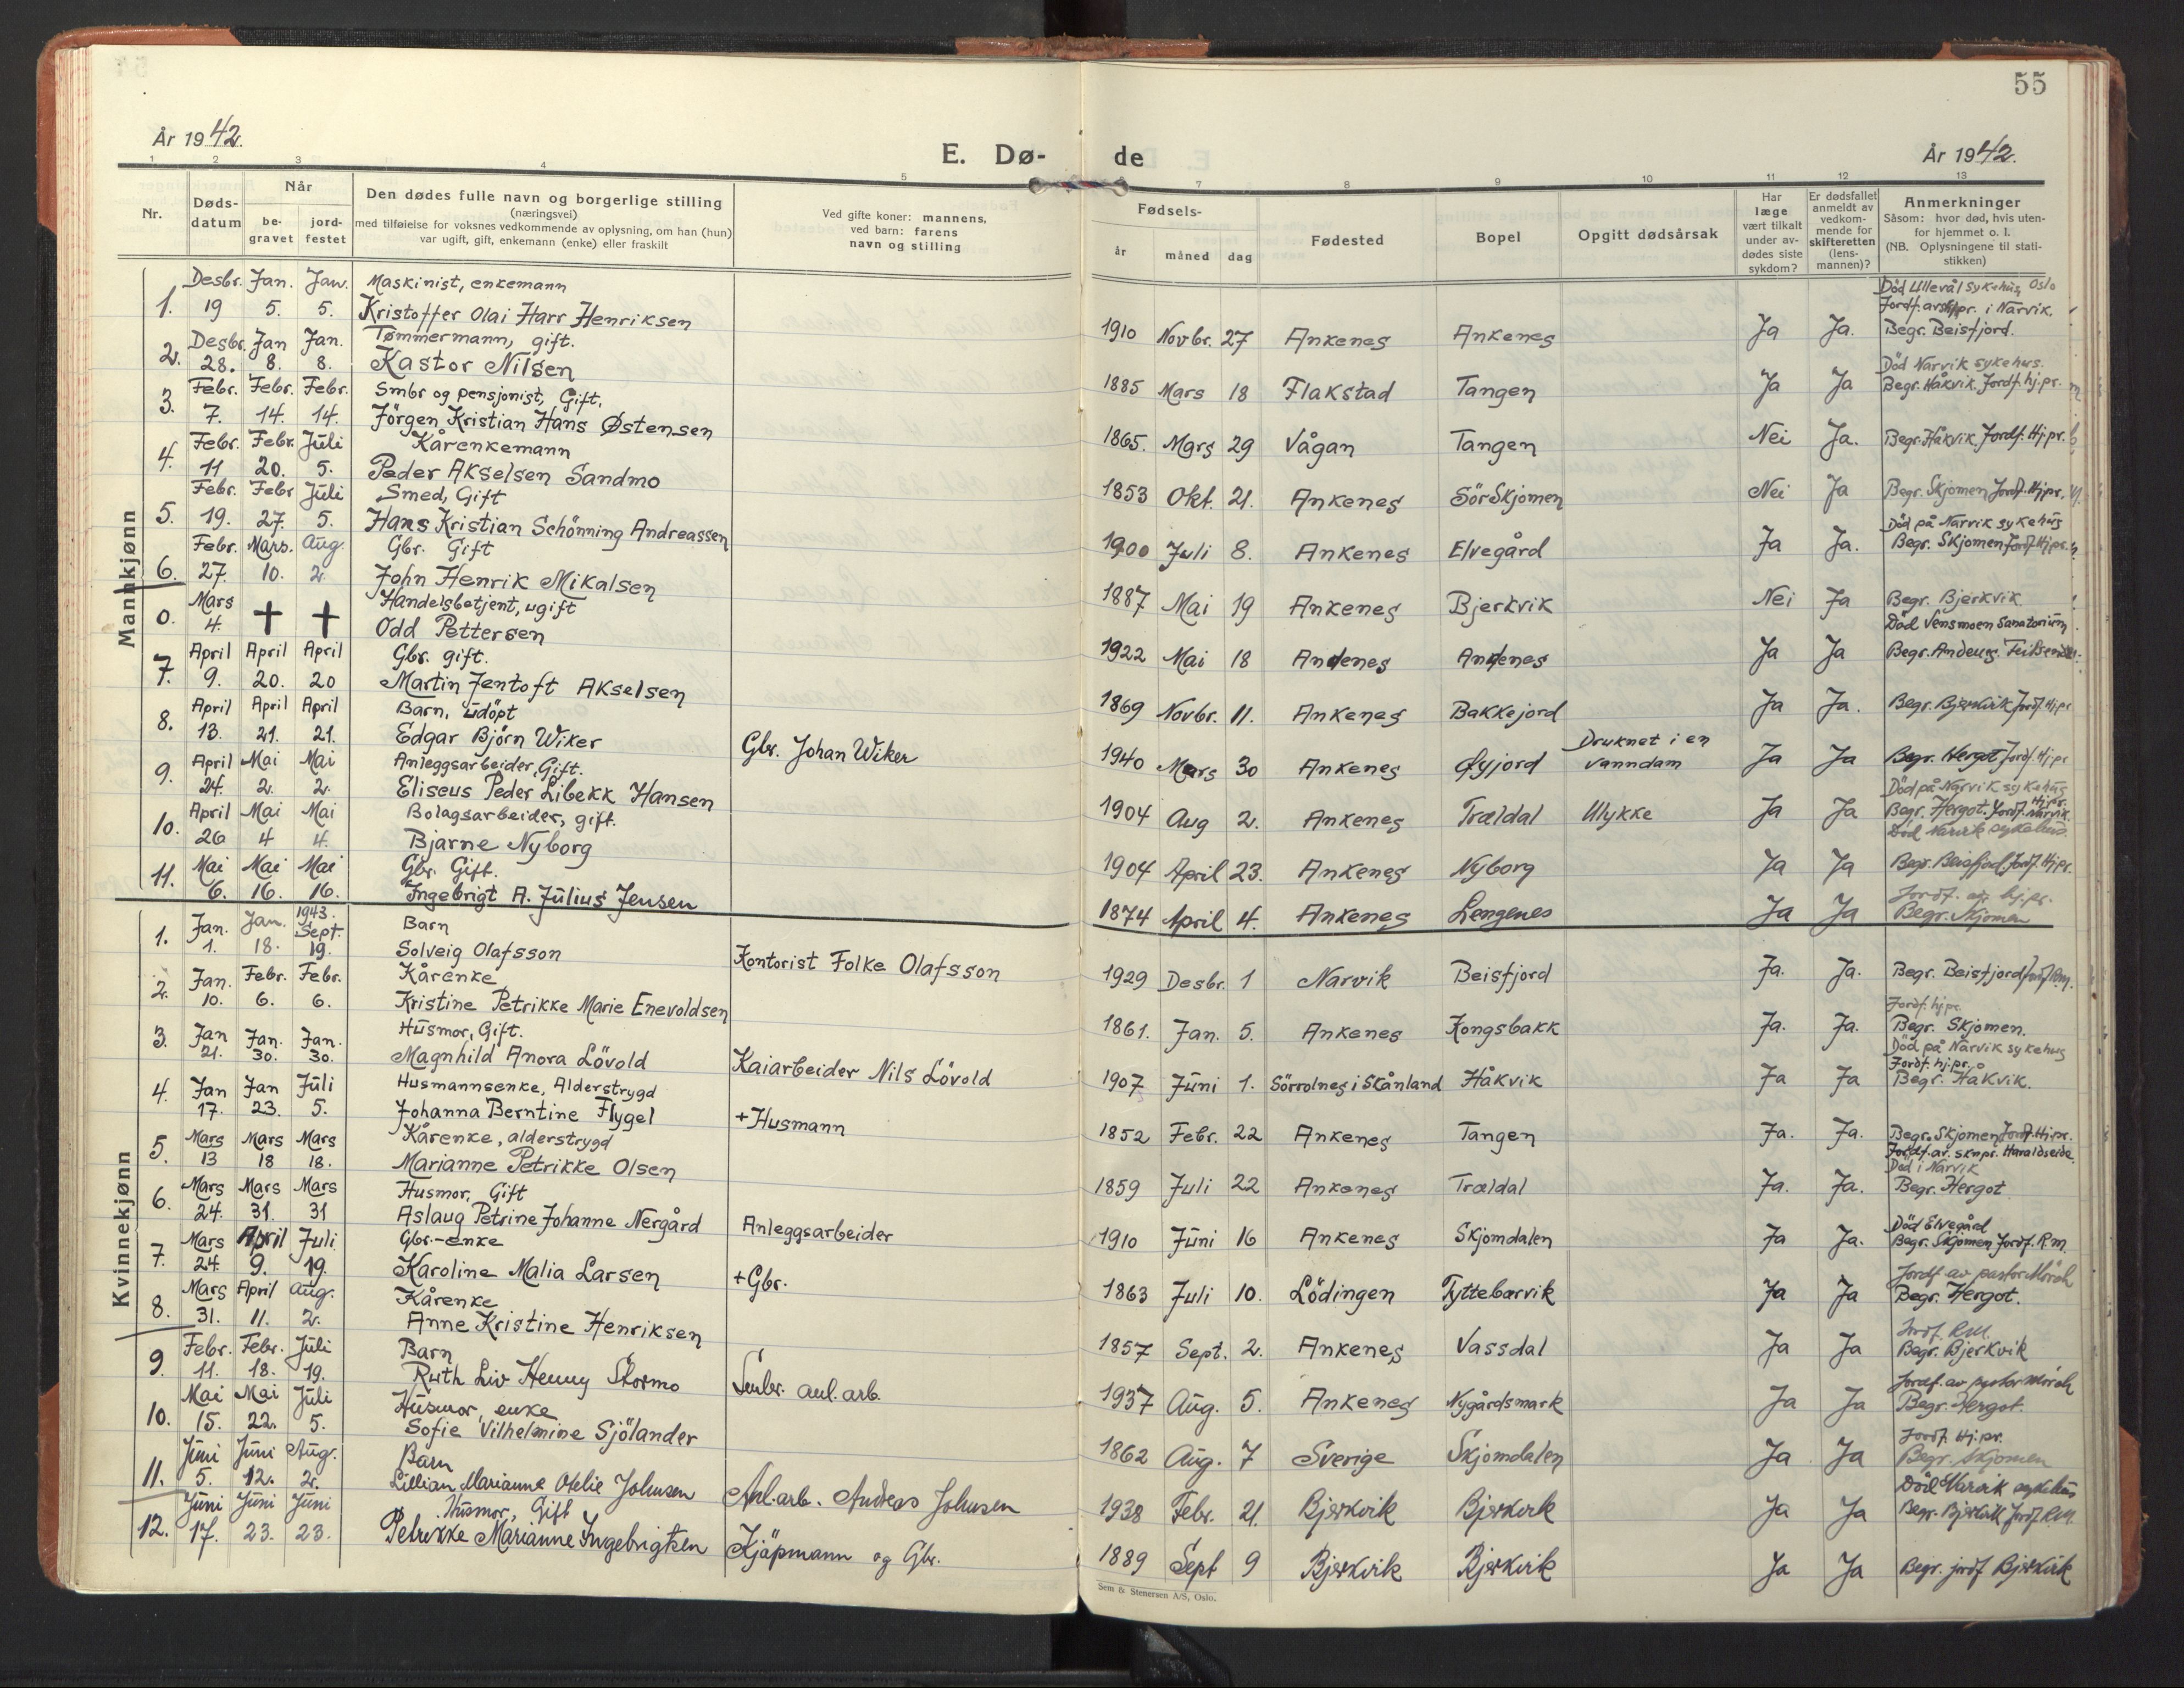 55
År 1942.
E. Dø-
de
År 1942.
1 2 3 4 5 7 8 9 10 11 12 13
Nr.
Døds-
datum
Når
be-
gravet
jord-
festet
Den dødes fulle navn og borgerlige stilling
(næringsvei)
med tilføielse for voksnes vedkommende av oplysning, om han (hun)
var ugift, gift, enkemann (enke) eller fraskilt
Ved gifte koner: mannens,
ved barn: farens
navn og stilling
Fødsels-
år måned dag
Fødested
Bopel
Opgitt dødsårsak
Har
læge
vært tilkalt
under av-
dødes siste
sykdom?
Er dødsfallet
anmeldt av
vedkom-
mende for
skifteretten
(lens-
mannen)?
Anmerkninger
Såsom: hvor død, hvis uten-
for hjemmet o. l.
(NB. Oplysningene til stati-
stikken)
Mannkjønn
Desbr. Jan. Jan. Maskinist, enkemann Død Ullevål sykehus Oslo
1. 19 5. 5. Kristoffer Olai Harr Henriksen 1910 Novbr. 27 Ankenes Ankenes Ja Ja. Begr. Beisfjord.
Desbr. Jan Jan. Tømmermann, gift. Død Narvik sykehus.
2. 28. 8. 8. Kastor Nilsen 1885 Mars 18 Flakstad Tangen Ja Ja Begr. Håkvik. Jordf. hj.pr.
Febr. Febr. Febr. Smbr og pensjonist, Gift.
3. 7. 14. 14. Jörgen Kristian Hans Østensen 1865. Mars 29 Vågan Tangen Nei Ja. Begr. Håkvik, Jordf. Hj.pr.
Febr. Febr. Juli Kårenkemann
4. 11 20. 5. Peder Akselsen Sandmo 1853 Okt. 21. Ankenes SörSkjomen Nei Ja Begr. Skjomen Jordf. Hjpr.
Febr. Febr Juli Smed, Gift Död på Narvik sykehus
5. 19. 27. 5. Hans Kristian Schönning Andreassen 1900 Juli 8. Ankenes Elvegård Ja Ja. Begr. Skjomen Jordf Hjpr.
Febr. Mars. Aug. Gbr. Gift
6. 27. 10. 2. John Henrik Mikalsen 1887 Mai 19 Ankenes Bjerkvik Nei Ja Begr. Bjerkvik
Mars Handelsbetjent, ugift Död Vensmoen Sanatorium
0. 4. + + Odd Pettersen 1922 Mai 18 Andenes Andenes Ja Ja Begr. Andenes
April April April Gbr. gift.
7. 9. 20. 20 Martin Jentoft Akselsen 1869 Novbr. 11. Ankenes Bakkejord Ja Ja. Begr. Bjerkvik Jordf. Hjpr
April April April Barn, udöpt
8. 13. 21. 21. Edgar Bjørn Wiker Gbr. Johan Wiker 1940 Mars 30 Ankenes Øyjord Druknet i en vanndam Ja Ja Begr. Hergot Jordf. Hj.pr
April Mai Mai Anleggsarbeider, Gift. Död på Narvik sykehus
9. 24. 2. 2. Eliseus Peder Libekk Hansen 1904 Aug 2. Ankenes Traldal Ulykke Ja Ja Begr. Hergot. Jordf. Hj.pr. Narvik.
April Mai Mai Bolagsarbeider, gift. Död Narvik sykehus.
10. 26 4 4. Bjarne Nyborg 1904 April 23. Ankenes Nyborg Ja Ja Begr. Beisfjord. Jordf. Hjpr.
Mai Mai Mai Gbr. Gift. Jordf. av hj.pr.
11. 6. 16. 16. Ingebrigt A. Julius Jensen 1874 April 4. Ankenes Lengenes Ja Ja Begr. Skjomen
Kvinnekjønn
Jan. Jan. 1943. Sept. Barn
1. 1. 18. 19. Solveig Olafsson Kontorist Folke Olafsson 1929 Desbr. 1 Narvik Beisfjord Ja. Ja. Begr. Beisfjord Jordf R.M.
Jan. Febr. Febr. Kårenke Jordf. hjpr.
2. 10. 6. 6. Kristine Petrikke Marie Enevoldsen 1861. Jan. 5. Ankenes Kongsbakk Ja. Ja. Begr. Skjomen.
Jan Jan. Jan. Husmor, Gift. Död på Narvik sykehus Jordf. hj.pr.
3. 21. 30. 30. Magnhild Anora Lövold Kaiarbeider Nils Lövold 1907 Juni 1. Sörrolnes i Skånland Håkvik Ja Ja Begr. Håkvik.
Jan Jan Juli Husmannsenke, Alderstrygd
4. 17. 23. 5. Johanna Berntine Flygel +Husmann 1852 Febr. 22 Ankenes Tangen Ja. Ja. Begr. Skjomen Jordf. Hj.pr.
Mars Mars Mars Kårenke, alderstrygd Jordf. av. sknpr. Haraldseide. Död i Narvik
5. 13 18 18. Marianne Petrikke Olsen 1859 Juli 22 Ankenes Traldal Ja. Ja. Begr. Hergot.
Mars Mars Mars Husmor, Gift Död Elvegård
6. 24. 31. 31 Aslaug Petrine Johanne Nergård Anleggsarbeider 1910 Juni 16 Ankenes Skjomdalen Ja Ja. Begr. Skjomen Jordf. R.m.
Mars April Juli Gbr.-enke Jordf av pastor Mörch
7. 24. 9. 19. Karoline Malia Larsen +Gbr. 1863 Juli 10. Lödingen Tyttebærvik Ja Ja Begr. Hergot.
Mars April Aug. Kårenke Jordf. RM.
8. 31. 11. 2. Anne Kristine Henriksen 1857 Sept. 2. Ankenes Vassdal Ja Ja Begr. Bjerkvik
Febr. Febr. Juli Barn Jordf. av pastor Mörch
9. 11. 18. 19. Ruth Liv Henny Stormo Smbr. anl.arb. 1937 Aug. 5. Ankenes Nygårdsmark Ja Ja Begr. Hergot.
Mai Mai Juli Husmor, enke Jordf. Hj.pr.
10. 15. 22. 5. Sofie Vilhelmine Sjölander 1862 Aug. 7 Sverige Skjomdalen Ja Ja Begr. Skjomen
Juni Juni Aug. Barn Död Narvik sykehus
11. 5. 12. 2. Lillian Marianne Otelie Johnsen Anl.arb. Andreas Johnsen 1938 Febr. 21. Bjerkvik Bjerkvik Ja Ja Begr. Bjerkvik Jordf R.M.
Juni Juni Juni Husmor, Gift
12. 17. 23. 23. Petrikke Marianne Ingebrigtsen Kjöpmann og Gbr. 1889 Sept 9 Bjerkvik Bjerkvik Ja Ja Begr. jordf Bjerkvik
Sem & Stenersen A/S, Oslo.